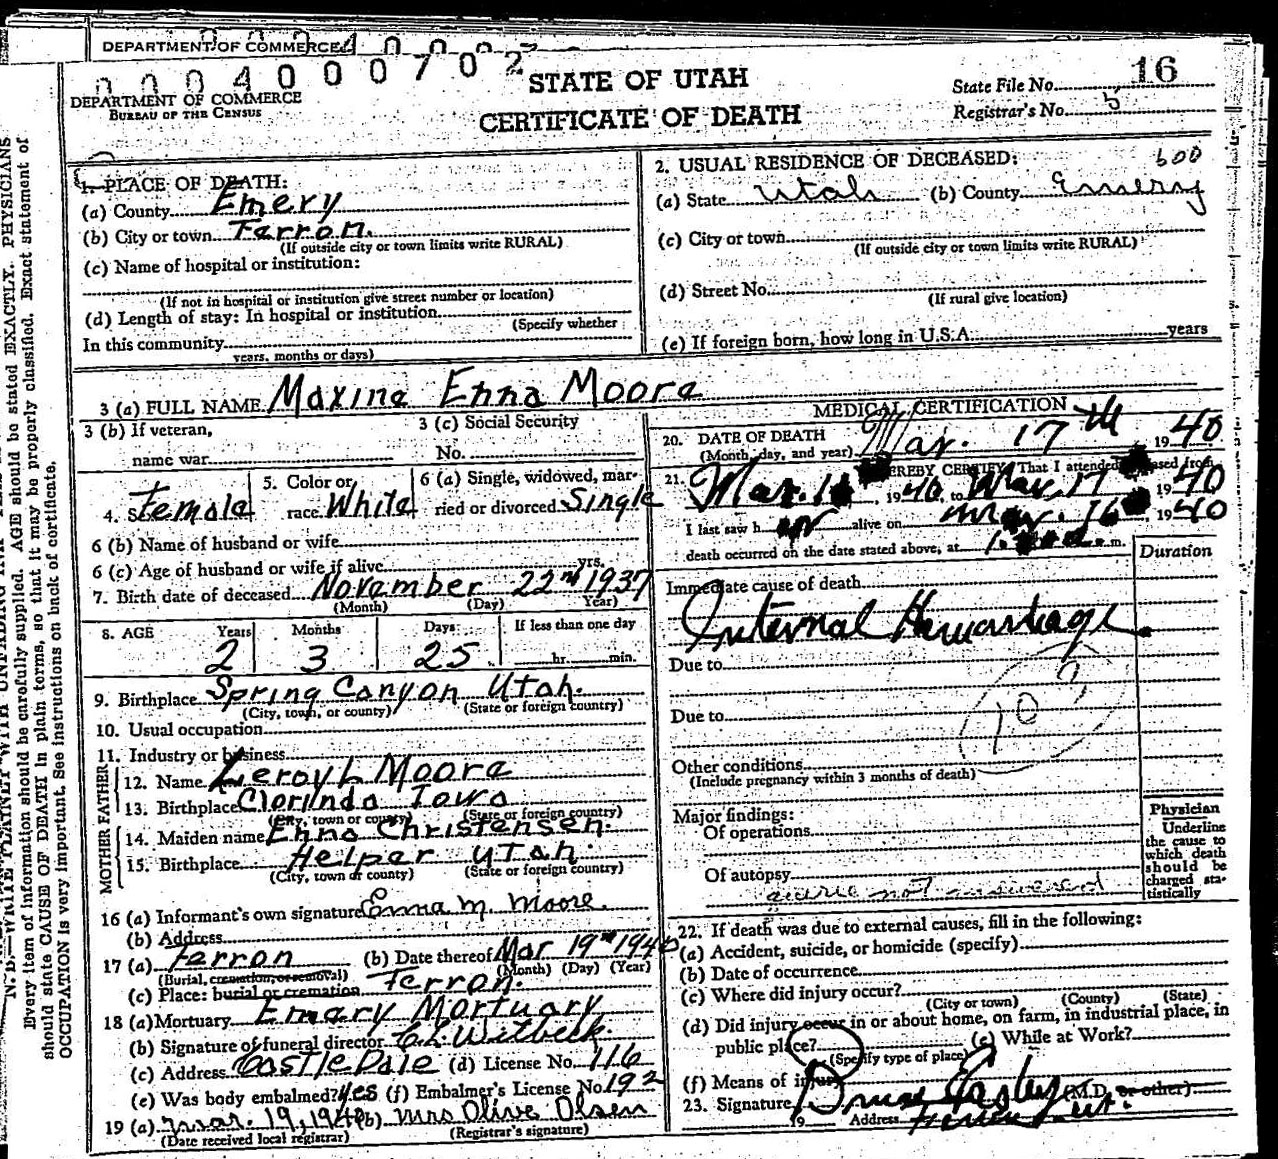 DEPARTMENT OF COMMERCE
0004000702
DEPARTMENT OF COMMERCE
BUREAU OF THE CENSUS
STATE OF UTAH
CERTIFICATE OF DEATH
State File No. 16
Registrar's No. 5
1. PLACE OF DEATH:
(a) County Emery
(b) City or town Ferron.
(If outside city or town limits write RURAL)
(c) Name of hospital or institution:
(If not in hospital or institution give street number or location)
(d) Length of stay: In hospital or institution
(Specify whether
In this community
years, months or days)
2. USUAL RESIDENCE OF DECEASED: 600
(a) State Utah (b) County Emery
(c) City or town
(If outside city or town limits write RURAL)
(d) Street No.
(If rural give location)
(e) If foreign born, how long in U.S.A. years
3 (a) FULL NAME Maxine Enna Moore
3 (b) If veteran, 3 (c) Social Security
name war No.
4. Sex Female 5. Color or race White 6 (a) Single, widowed, married or divorced Single
6 (b) Name of husband or wife
6 (c) Age of husband or wife if alive yrs.
7. Birth date of deceased November 22nd 1937
(Month) (Day) Year)
8. AGE Years Months Days If less than one day
2 3 25 hr. min.
9. Birthplace Spring Canyon Utah.
(City, town, or county) (State or foreign country)
10. Usual occupation
11. Industry or business
FATHER
12. Name Leroy L Moore
13. Birthplace Clarinda Iowa
(City, town or county) (State or foreign country)
MOTHER
14. Maiden name Enna Christensen.
15. Birthplace Helper Utah.
(City, town or county) (State or foreign country)
16 (a) Informant's own signature Enna M. Moore.
(b) Address
17 (a) Ferron (b) Date thereof Mar 19th 1940
(Burial, cremation, or removal) (Month) (Day) (Year)
(c) Place: burial or cremation Ferron.
18 (a) Mortuary Emery Mortuary
(b) Signature of funeral director
(c) Address Castle Dale (d) License No. 116
(e) Was body embalmed? Yes (f) Embalmer's License No 192
19 (a) Mar. 19, 1940 (b) Mrs Olive Olsen
(Date received local registrar) (Registrar's signature)
MEDICAL CERTIFICATION
20. DATE OF DEATH
(Month, day, and year) Mar. 17th 1940
21. HEREBY CERTIFY That I attended deceased from
Mar. 1940, to Mar. 17 1940
I last saw her alive on Mar. 16 1940
death occurred on the date stated above, at m.
Duration
Immediate cause of death
Internal Hemorrhage
Due to
Due to
Other conditions
(Include pregnancy within 3 months of death)
Major findings:
Of operations
Of autopsy
not answered
Physician
Underline
the cause to
which death
should be
charged sta-
tistically
22. If death was due to external causes, fill in the following:
(a) Accident, suicide, or homicide (specify)
(b) Date of occurrence
(c) Where did injury occur?
(City or town) (County) (State)
(d) Did injury occur in or about home, on farm, in industrial place, in
public place? (e) While at Work?
(Specify type of place)
(f) Means of injury
23. Signature (M.D. or other)
19 Address Ferron Ut.
Every item of information should be carefully supplied. AGE should be stated EXACTLY. PHYSICIANS
should state CAUSE OF DEATH in plain terms, so that it may be properly classified. Exact statement of
OCCUPATION is very important. See instructions on back of certificate.